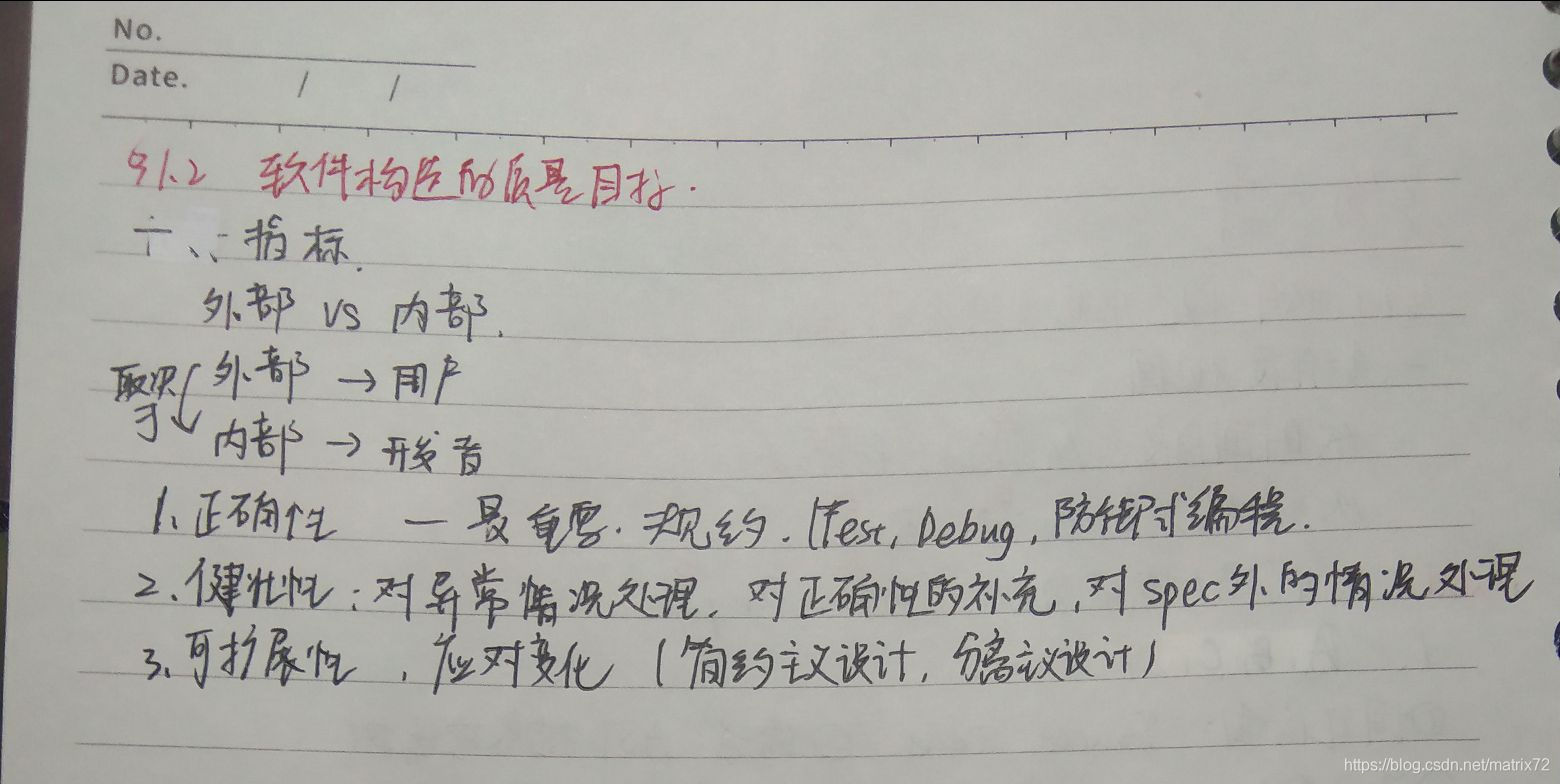 No.
Date. / /
§1.2 软件构造的质量目标.
一、:指标.
外部 vs 内部.
取决于 外部 → 用户
内部 → 开发者
1、正确性 — 最重要. 规约. (Test, Debug, 防御式编程.
2、健壮性:对异常情况处理. 对正确性的补充,对spec外的情况处理
3、可扩展性 ,应对变化 (简约主义设计, 分离主义设计)
https://blog.csdn.net/matrix72